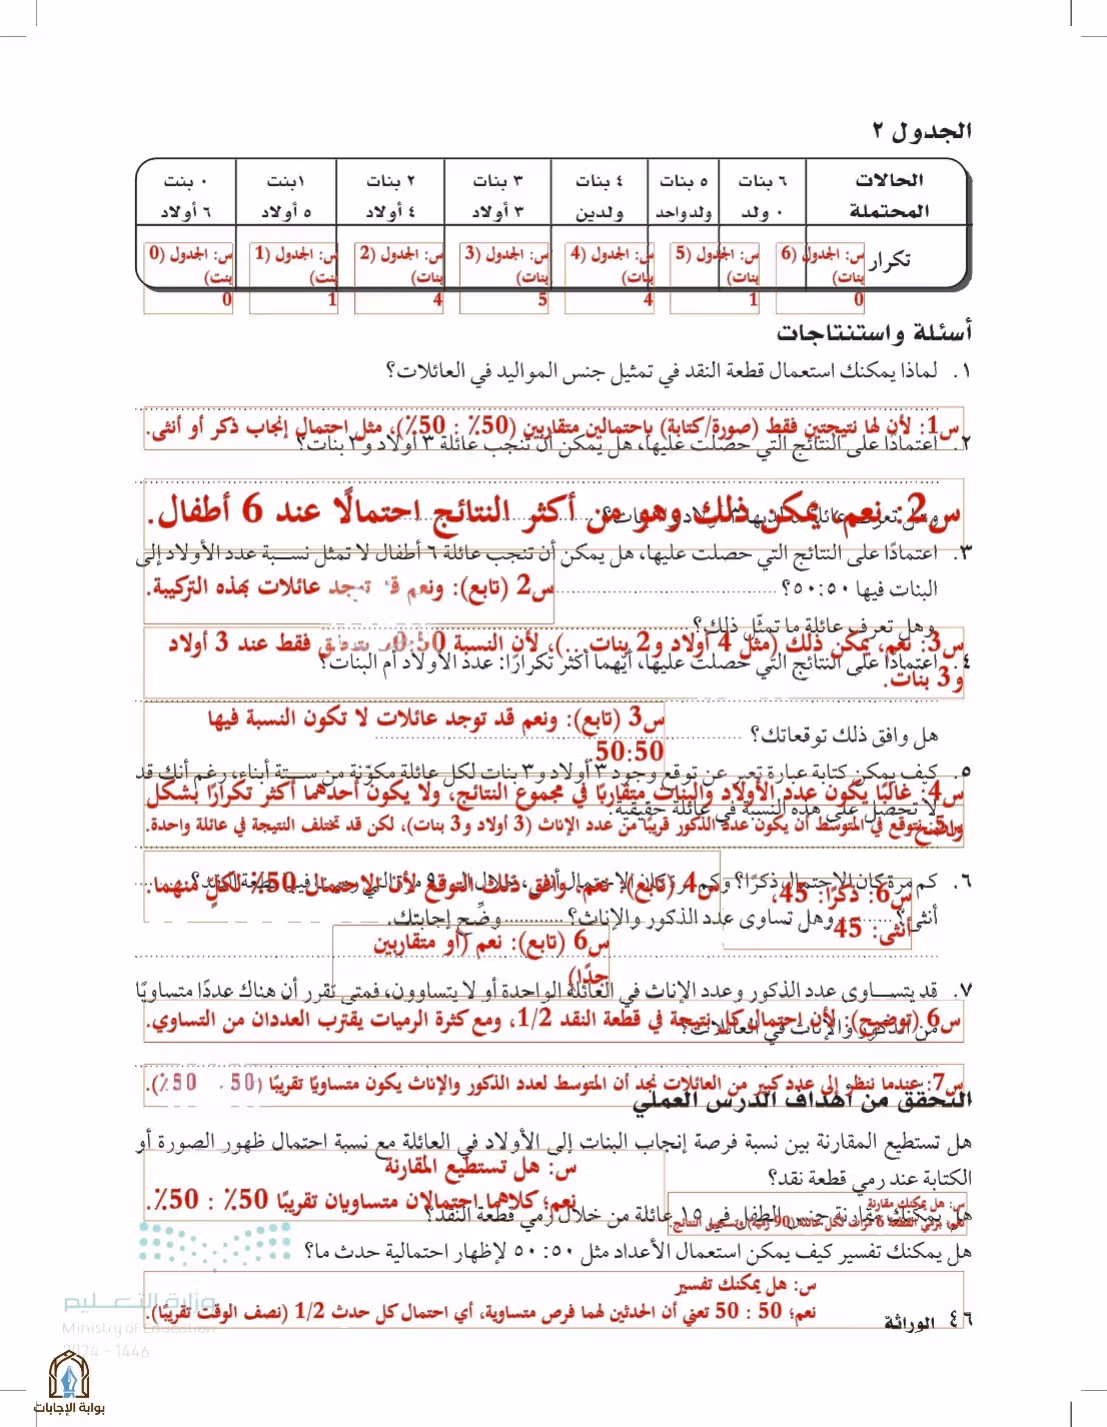 الجدول ٢
الحالات المحتملة
٦ بنات ٠ ولد
٥ بنات ولد واحد
٤ بنات ولدين
٣ بنات ٣ أولاد
٢ بنات ٤ أولاد
١ بنت ٥ أولاد
٠ بنت ٦ أولاد
تكرار
س: الجدول (6 بنات) 0
س: الجدول (5 بنات) 1
س: الجدول (4 بنات) 4
س: الجدول (3 بنات) 5
س: الجدول (2 بنات) 4
س: الجدول (1 بنت) 1
س: الجدول (0 بنت) 0
أسئلة واستنتاجات
١. لماذا يمكنك استعمال قطعة النقد في تمثيل جنس المواليد في العائلات؟
س1: لأن لها نتيجتين فقط (صورة/كتابة) باحتمالين متقاربين (50٪ : 50٪)، مثل احتمال إنجاب ذكر أو أنثى.
٢. اعتمادًا على النتائج التي حصلت عليها، هل يمكن أن تنجب عائلة ٣ أولاد و٣ بنات؟
س2: نعم، يمكن ذلك وهو من أكثر النتائج احتمالًا عند 6 أطفال.
٣. اعتمادًا على النتائج التي حصلت عليها، هل يمكن أن تنجب عائلة ٦ أطفال لا تمثل نسبة عدد الأولاد إلى
البنات فيها ٥٠:٥٠؟
س2 (تابع): ونعم قد توجد عائلات بهذه التركيبة.
وهل تعرف عائلة ما تمثّل ذلك؟
س3: نعم، يمكن ذلك (مثل 4 أولاد و2 بنات...)، لأن النسبة 50:50 فقط عند 3 أولاد
و3 بنات.
٤. اعتمادًا على النتائج التي حصلت عليها، أيّهما أكثر تكرارًا: عدد الأولاد أم البنات؟
س3 (تابع): ونعم قد توجد عائلات لا تكون النسبة فيها
50:50
هل وافق ذلك توقعاتك؟
٥. كيف يمكن كتابة عبارة تعبر عن توقع وجود ٣ أولاد و٣ بنات لكل عائلة مكوّنة من ستة أبناء، رغم أنك قد
لا تحصل على هذه النسبة في عائلة حقيقية.
س4: غالبًا يكون عدد الأولاد والبنات متقاربًا في مجموع النتائج، ولا يكون أحدهما أكثر تكرارًا بشكل
واضح.
س5: نتوقع في المتوسط أن يكون عدد الذكور قريبًا من عدد الإناث (3 أولاد و3 بنات)، لكن قد تختلف النتيجة في عائلة واحدة.
٦. كم مرة كان الاحتمال ذكرًا؟ وكم مرة كان الاحتمال أنثى، خلال الـ ٩٠
أنثى؟ وهل تساوى عدد الذكور والإناث؟ وضّح إجابتك.
س4 (تابع): نعم، وافق ذلك التوقع لأن الاحتمال 50٪ لكلٍ منهما.
س6: ذكرًا: 45،
أنثى: 45
س6 (تابع): نعم (أو متقاربين
جدًا)
٧. قد يتساوى عدد الذكور وعدد الإناث في العائلة الواحدة أو لا يتساوون، فمتى تقرر أن هناك عددًا متساويًا
من الذكور والإناث في العائلات؟
س6 (توضيح): لأن احتمال كل نتيجة في قطعة النقد 1/2، ومع كثرة الرميات يقترب العددان من التساوي.
س7: عندما ننظر إلى عدد كبير من العائلات نجد أن المتوسط لعدد الذكور والإناث يكون متساويًا تقريبًا (50 50٪).
التحقق من أهداف الدرس العملي
هل تستطيع المقارنة بين نسبة فرصة إنجاب البنات إلى الأولاد في العائلة مع نسبة احتمال ظهور الصورة أو
الكتابة عند رمي قطعة نقد؟
س: هل تستطيع المقارنة
نعم؛ كلاهما احتمالان متساويان تقريبًا 50٪ : 50٪.
س: هل يمكنك مقارنة
نعم؛ برمي القطعة 6 مرات لكل عائلة (90 رمية) وتسجيل النتائج.
هل يمكنك مقارنة جنس الطفل في ١٥ عائلة من خلال رمي قطعة النقد؟
هل يمكنك تفسير كيف يمكن استعمال الأعداد مثل ٥٠:٥٠ لإظهار احتمالية حدث ما؟
س: هل يمكنك تفسير
نعم؛ 50 : 50 تعني أن الحدثين لهما فرص متساوية، أي احتمال كل حدث 1/2 (نصف الوقت تقريبًا).
وزارة التعليم
Ministry of Education
2024 - 1446
٤٦ الوراثة
بوابة الإجابات